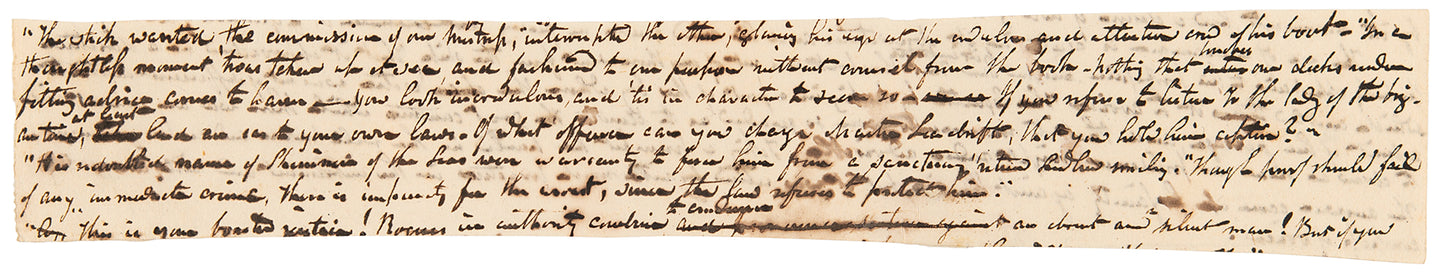 "The which wanted the commission of our mistress," interrupted the other, glancing his eye at the credulous and attentive crew of his boat - "In a
thoughtless moment 'twas taken up at sea, and fashioned to our purpose without counsel from the book. Nothing that touches our decks under
fitting advice comes to harm — You look incredulous, and 'tis in character to seem so - If you refuse to listen to the lady of the brig-
antine, at least lend an ear to your own laws. Of what offence can you charge Master Seadrift, that you hold him captive?"
"His redoubted name of Skimmer of the Seas were warranty to force him from a sanctuary" return'd Ludlow smiling. "Though proof should fail
of any immediate crime, there is impunity for the arrest, since the law refuses to protect him."
"this is your boasted justice! Rogues in authority combine to condemn an absent and silent man! But if you